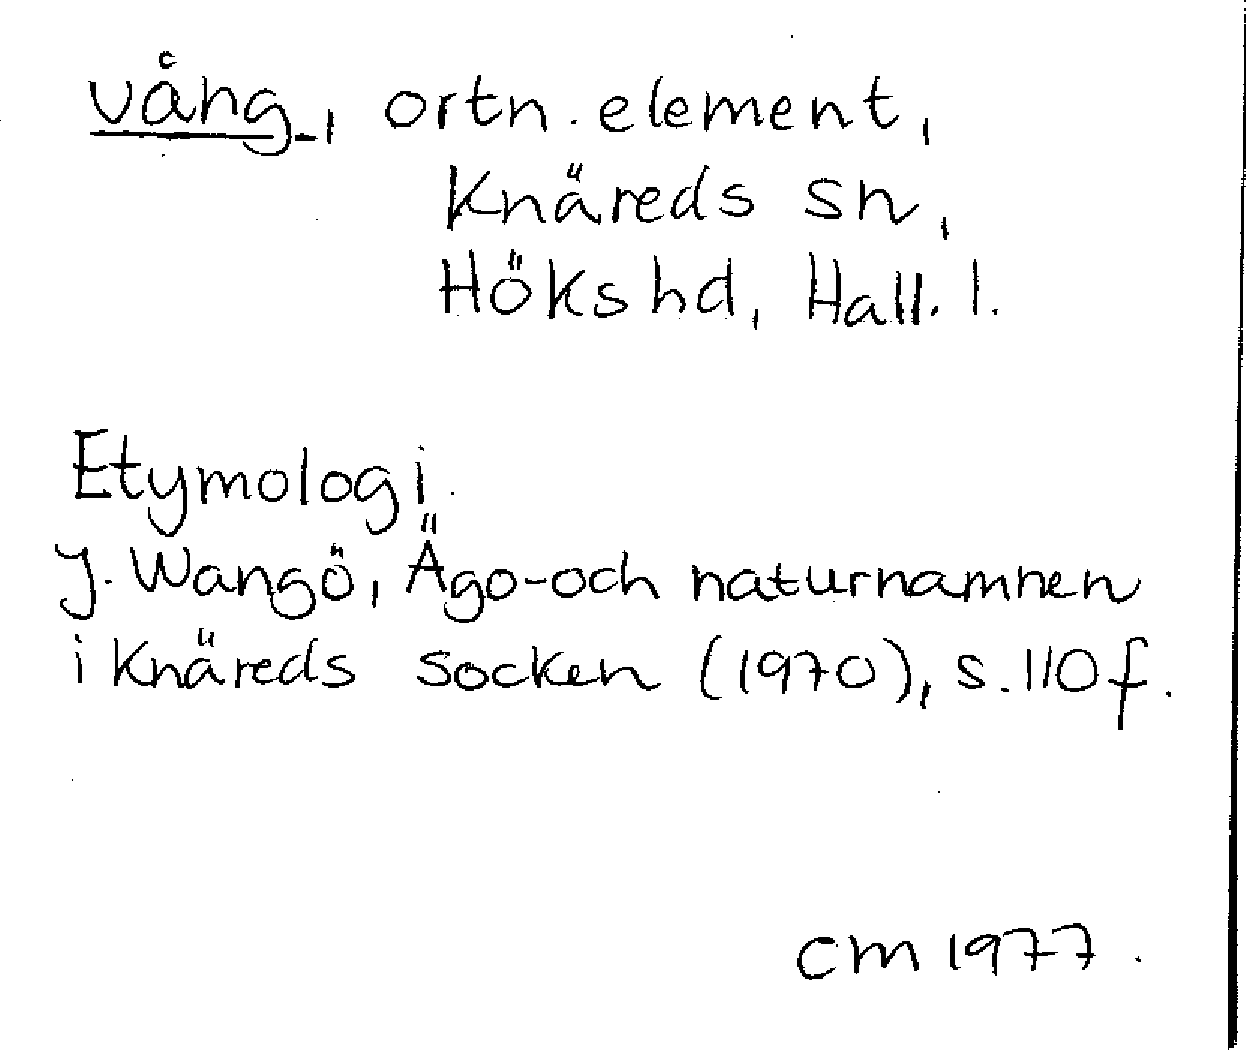 vång-, ortn. element,
Knäreds sn,
Höks hd, Hall. l.
Etymologi.
J. Wangö, Ägo- och naturnamnen
i Knäreds socken (1970), s. 110 f.
CM 1977.